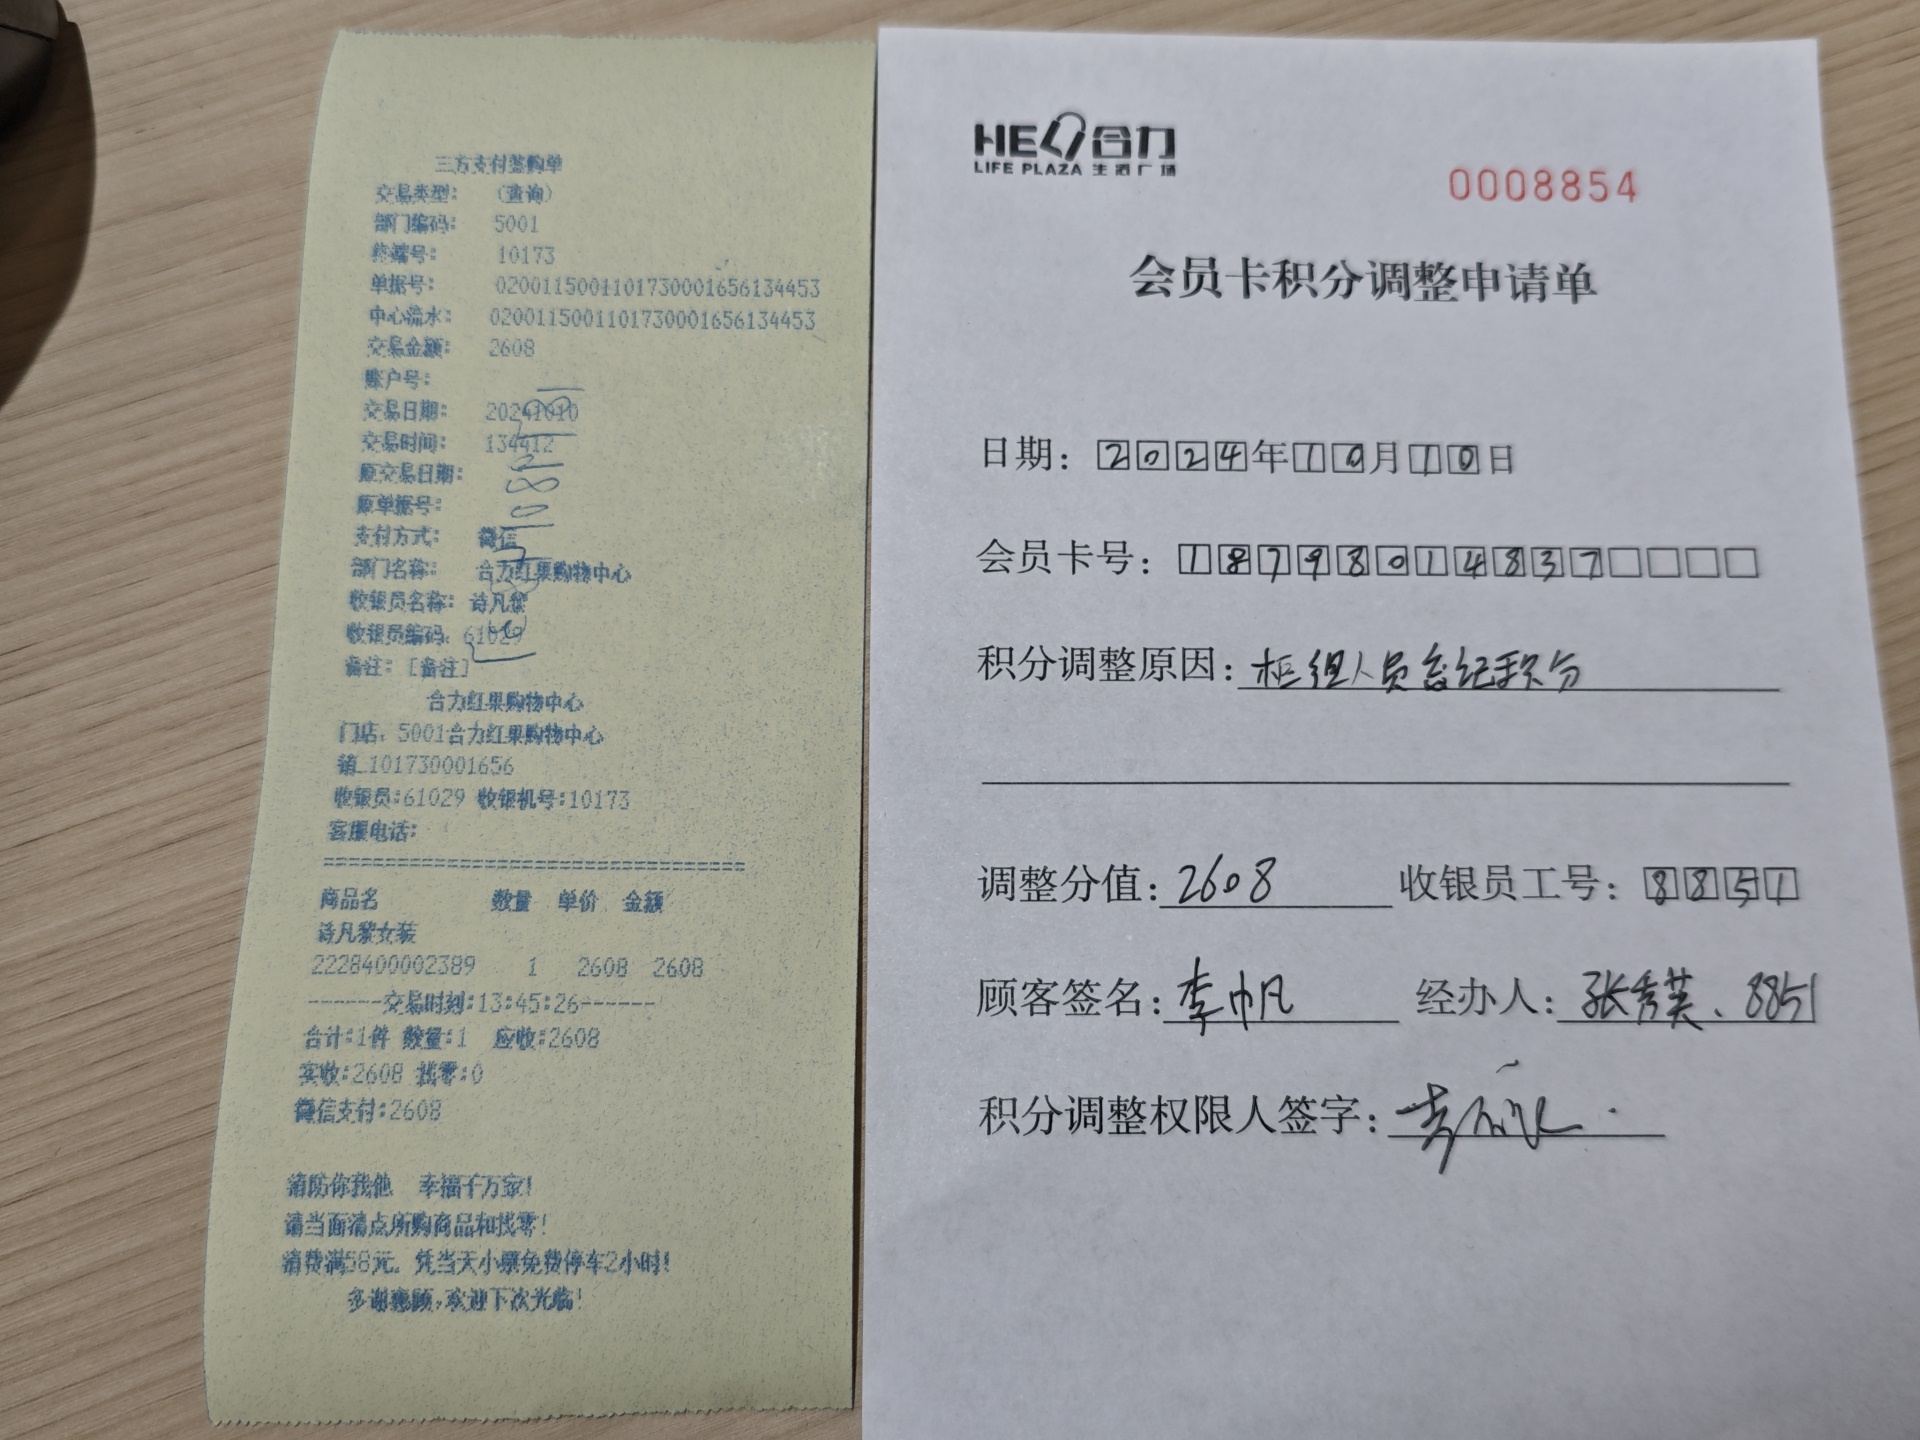 三方支付签购单
交易类型： （查询）
部门编码： 5001
终端号： 10173
单据号： 0200115001101730001656134453
中心流水： 0200115001101730001656134453
交易金额： 2608
账户号：
交易日期： 20241010
交易时间： 134412
原交易日期：
原单据号：
支付方式： 微信
部门名称： 合力红果购物中心
收银员名称： 诗凡黎
收银员编码： 61029
备注：[备注]
合力红果购物中心
门店：5001合力红果购物中心
销_101730001656
收银员:61029 收银机号:10173
客服电话:
================================
商品名 数量 单价 金额
诗凡黎女装
2228400002389 1 2608 2608
------交易时刻:13:45:26------
合计:1件 数量:1 应收:2608
实收:2608 找零:0
微信支付:2608
消防你我他 幸福千万家!
请当面清点所购商品和找零!
消费满58元，凭当天小票免费停车2小时!
多谢惠顾,欢迎下次光临!
HELI合力
LIFE PLAZA 生活广场
0008854
会员卡积分调整申请单
日期：2024年10月10日
会员卡号：18798014837
积分调整原因：柜组人员忘记积分
调整分值：2608 收银员工号：8851
顾客签名：李帆 经办人：张秀英、8851
积分调整权限人签字：